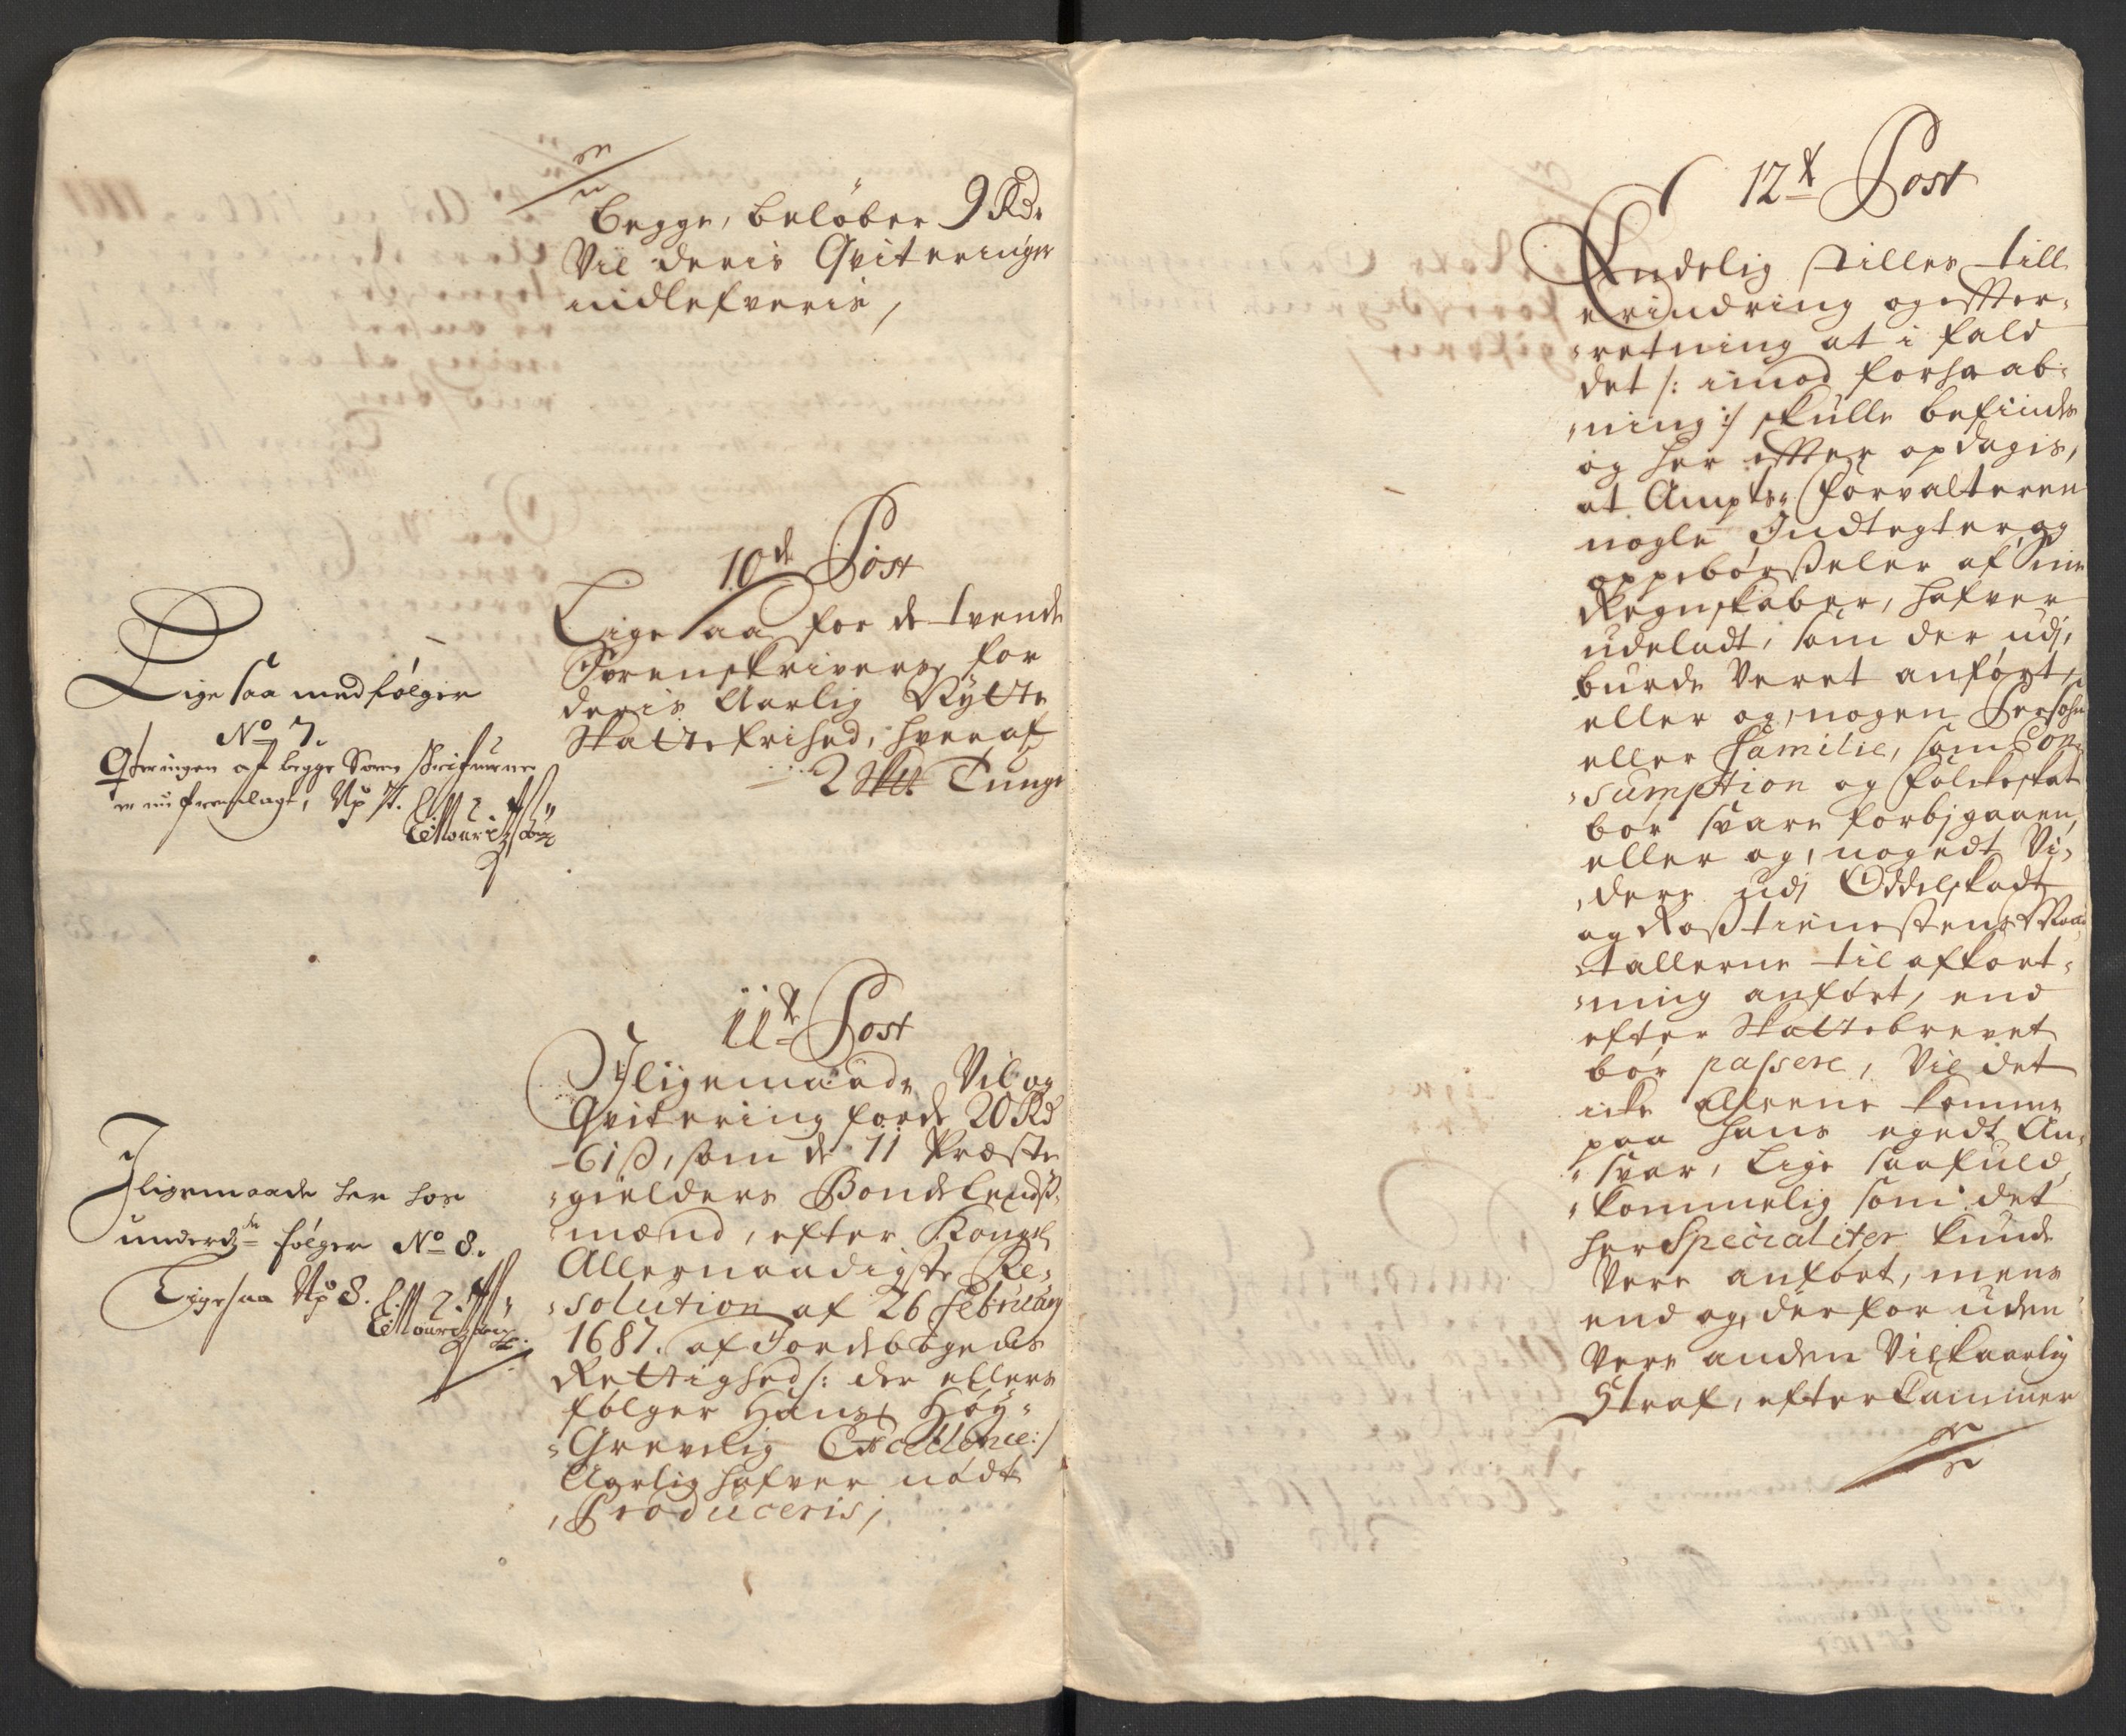 begge, beløber 9 Rd.
Vil deris Qviteringer
indlefveris,
10de Post
Lige saa for de tvende
Sorenskrivers, for
deris Aarlig Rytte
Skatte frihed, hver af
2 Tunge
Lige saa medfølger
No 7.
Qteringen af begge Soren Skrifverne
er nu fremlagt, No 7.
11te Post
Iligemaade Vil og
Qvitering for de 20 Rd
61 ß, som de 11 Præste
gielders Bondelends
mænd, efter Kongl
Allernaadigste Re-
solution af 26 February
1687. af Jordebogens
Rettighed /: der ellers
følger Hans Høy-
Grevelig Excellence :/
Aarlig hafver nødt
Produceris,
Iligemaade her hos
underd: følger No 8.
Ligesaa No 8.
12te Post
Endelig stilles till
erindring og efter-
retning at i fald
det /: imod forhaab-
ning :/ skulle befindes
og her efter opdagis,
at Ampts-forvalteren
nogle Indtegter og
oppebørßeler af Sine
Regnskaber, hafver
udeladt, som der udj,
burde Veret anført,
eller og, nogen Persohn
eller Familie, som Con-
sumption og folcke skat
bør svare forbjgaaen,
eller og, nogedt Vi-
dere udj Oddelskadt
og Roßtienestens Man-
tallerne til afkort-
ning anført, end
efter Skattebrevet
bør passere, Vil det
icke alleene komme
paa hans egedt An-
svar, Lige saa fuld
kommelig som det
her Specialiter kunde
Vere anført, mens
end og, der for uden
Vere anden Vilkaarlig
Straf, efter Cammer